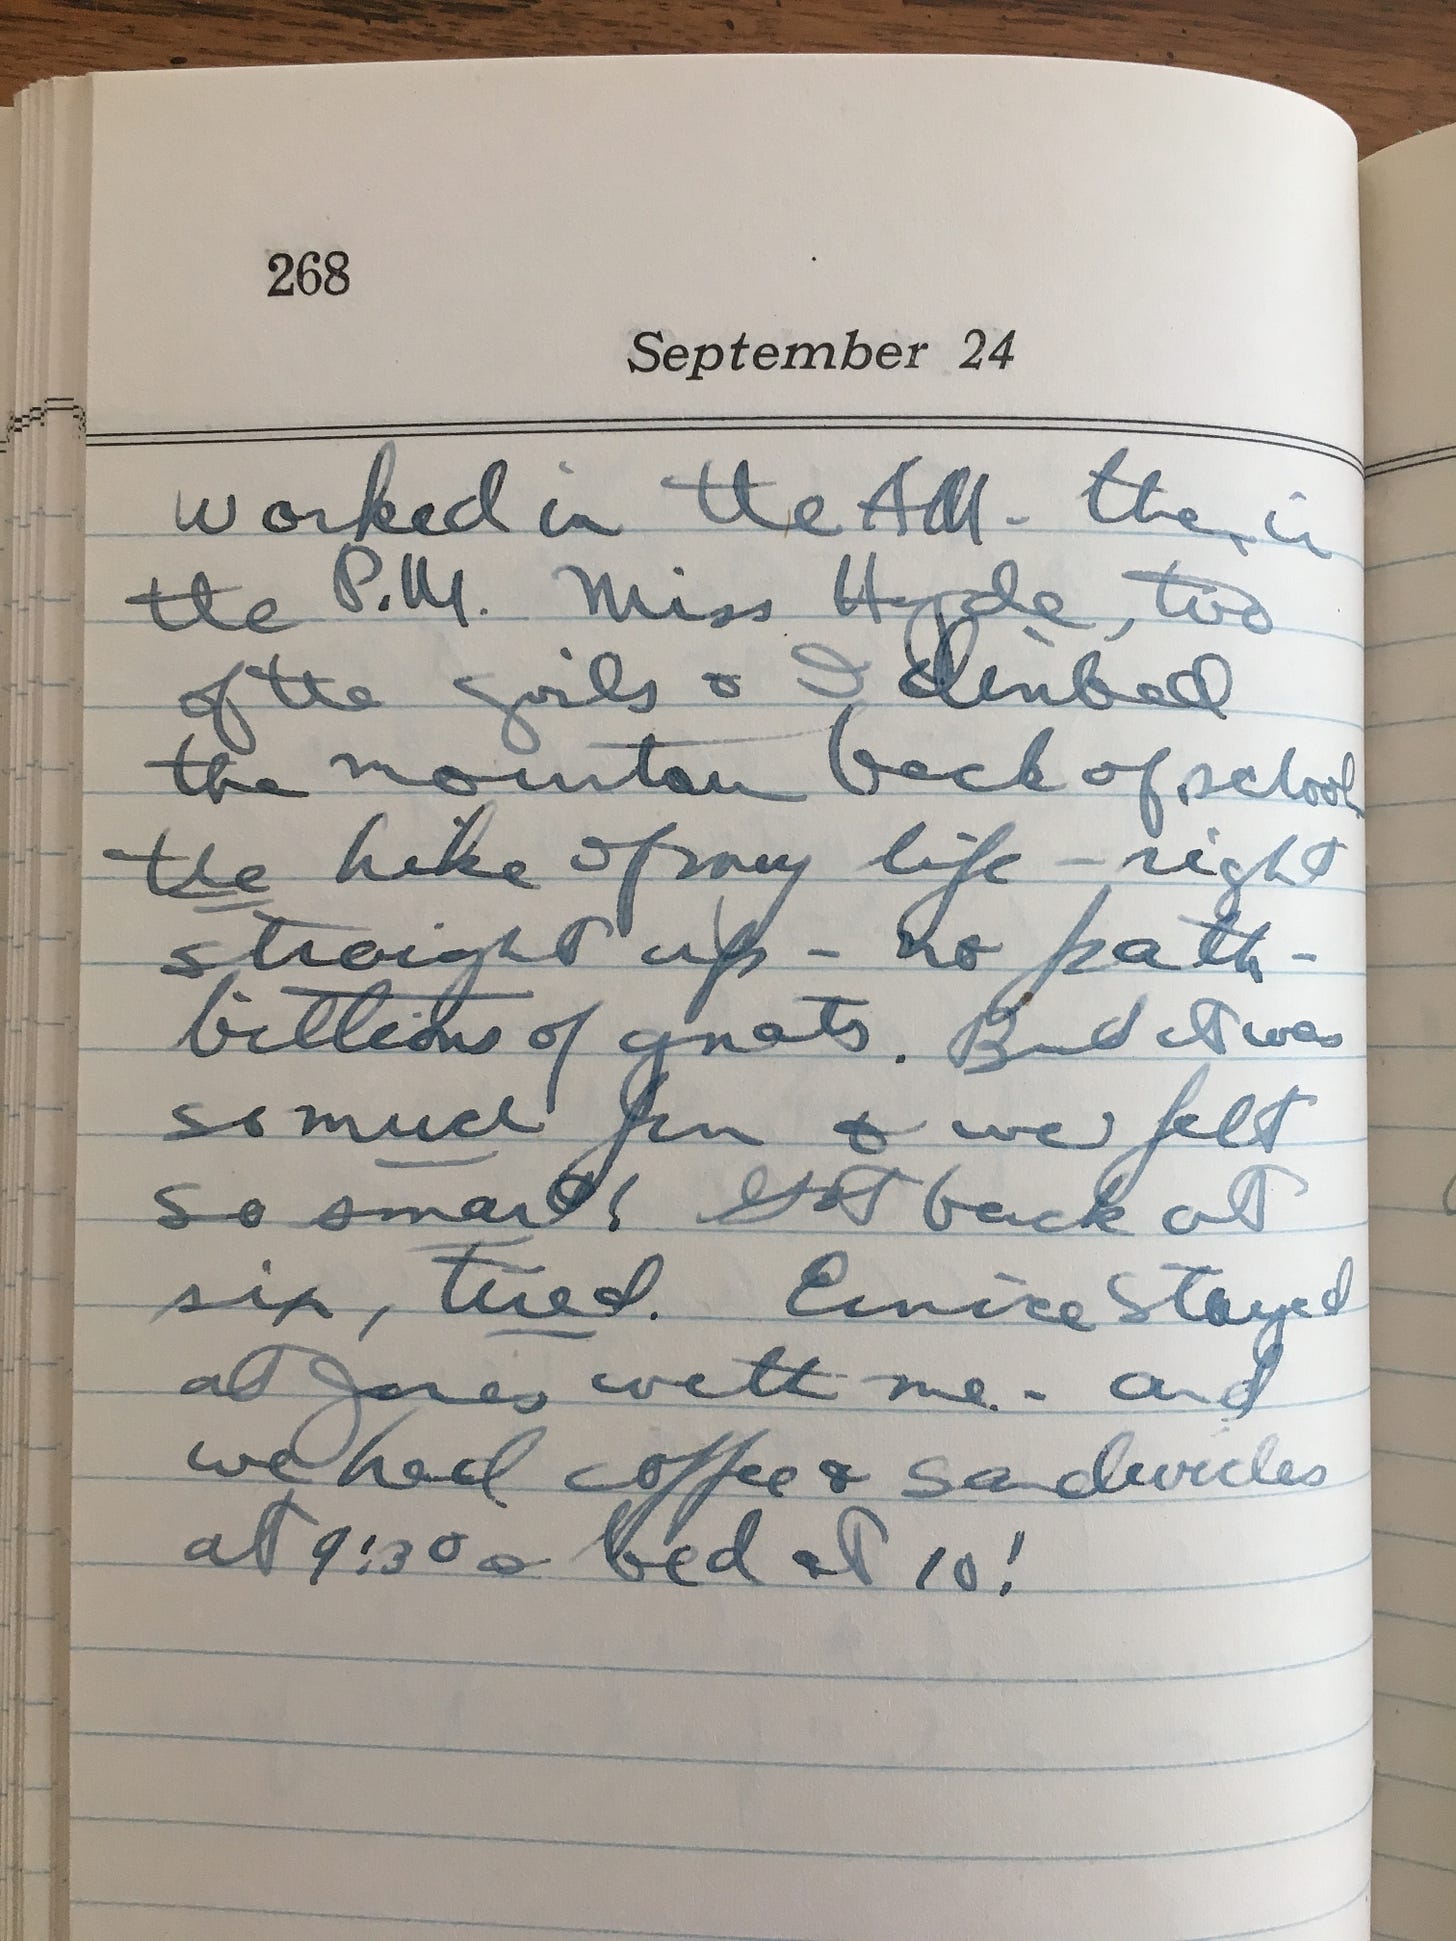 268
September 24
worked in the AM - then in
the P.M. Miss Hyde, two
of the girls & I climbed
the mountain back of school
the hike of my life - right
straight up - no path -
billions of gnats. But it was
so much fun & we felt
so smart! Got back at
six, tired. Eunice stayed
at Jones with me - and
we had coffee & sandwiches
at 9:30 & bed at 10!